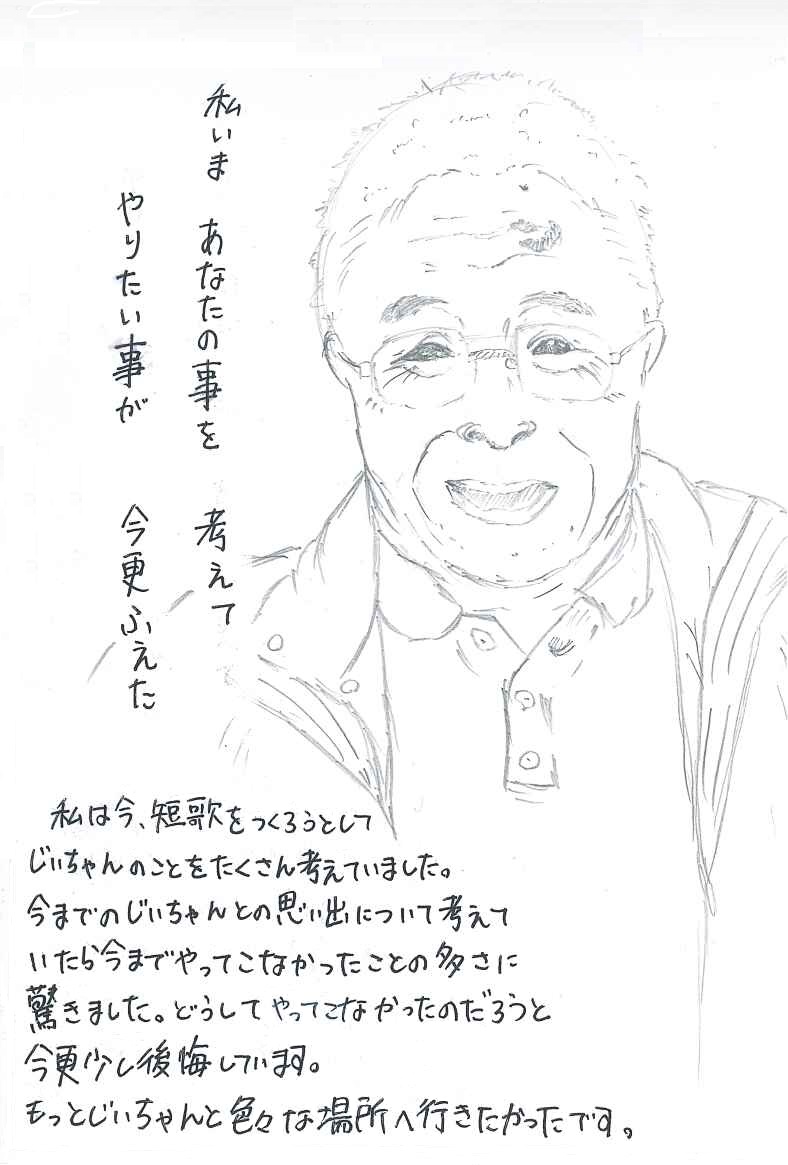 私いま　あなたの事を　考えて
やりたい事が　今更ふえた
私は今、短歌をつくろうとして
じいちゃんのことをたくさん考えていました。
今までのじいちゃんとの思い出について考えて
いたら今までやってこなかったことの多さに
驚きました。どうしてやってこなかったのだろうと
今更少し後悔しています。
もっとじいちゃんと色々な場所へ行きたかったです。